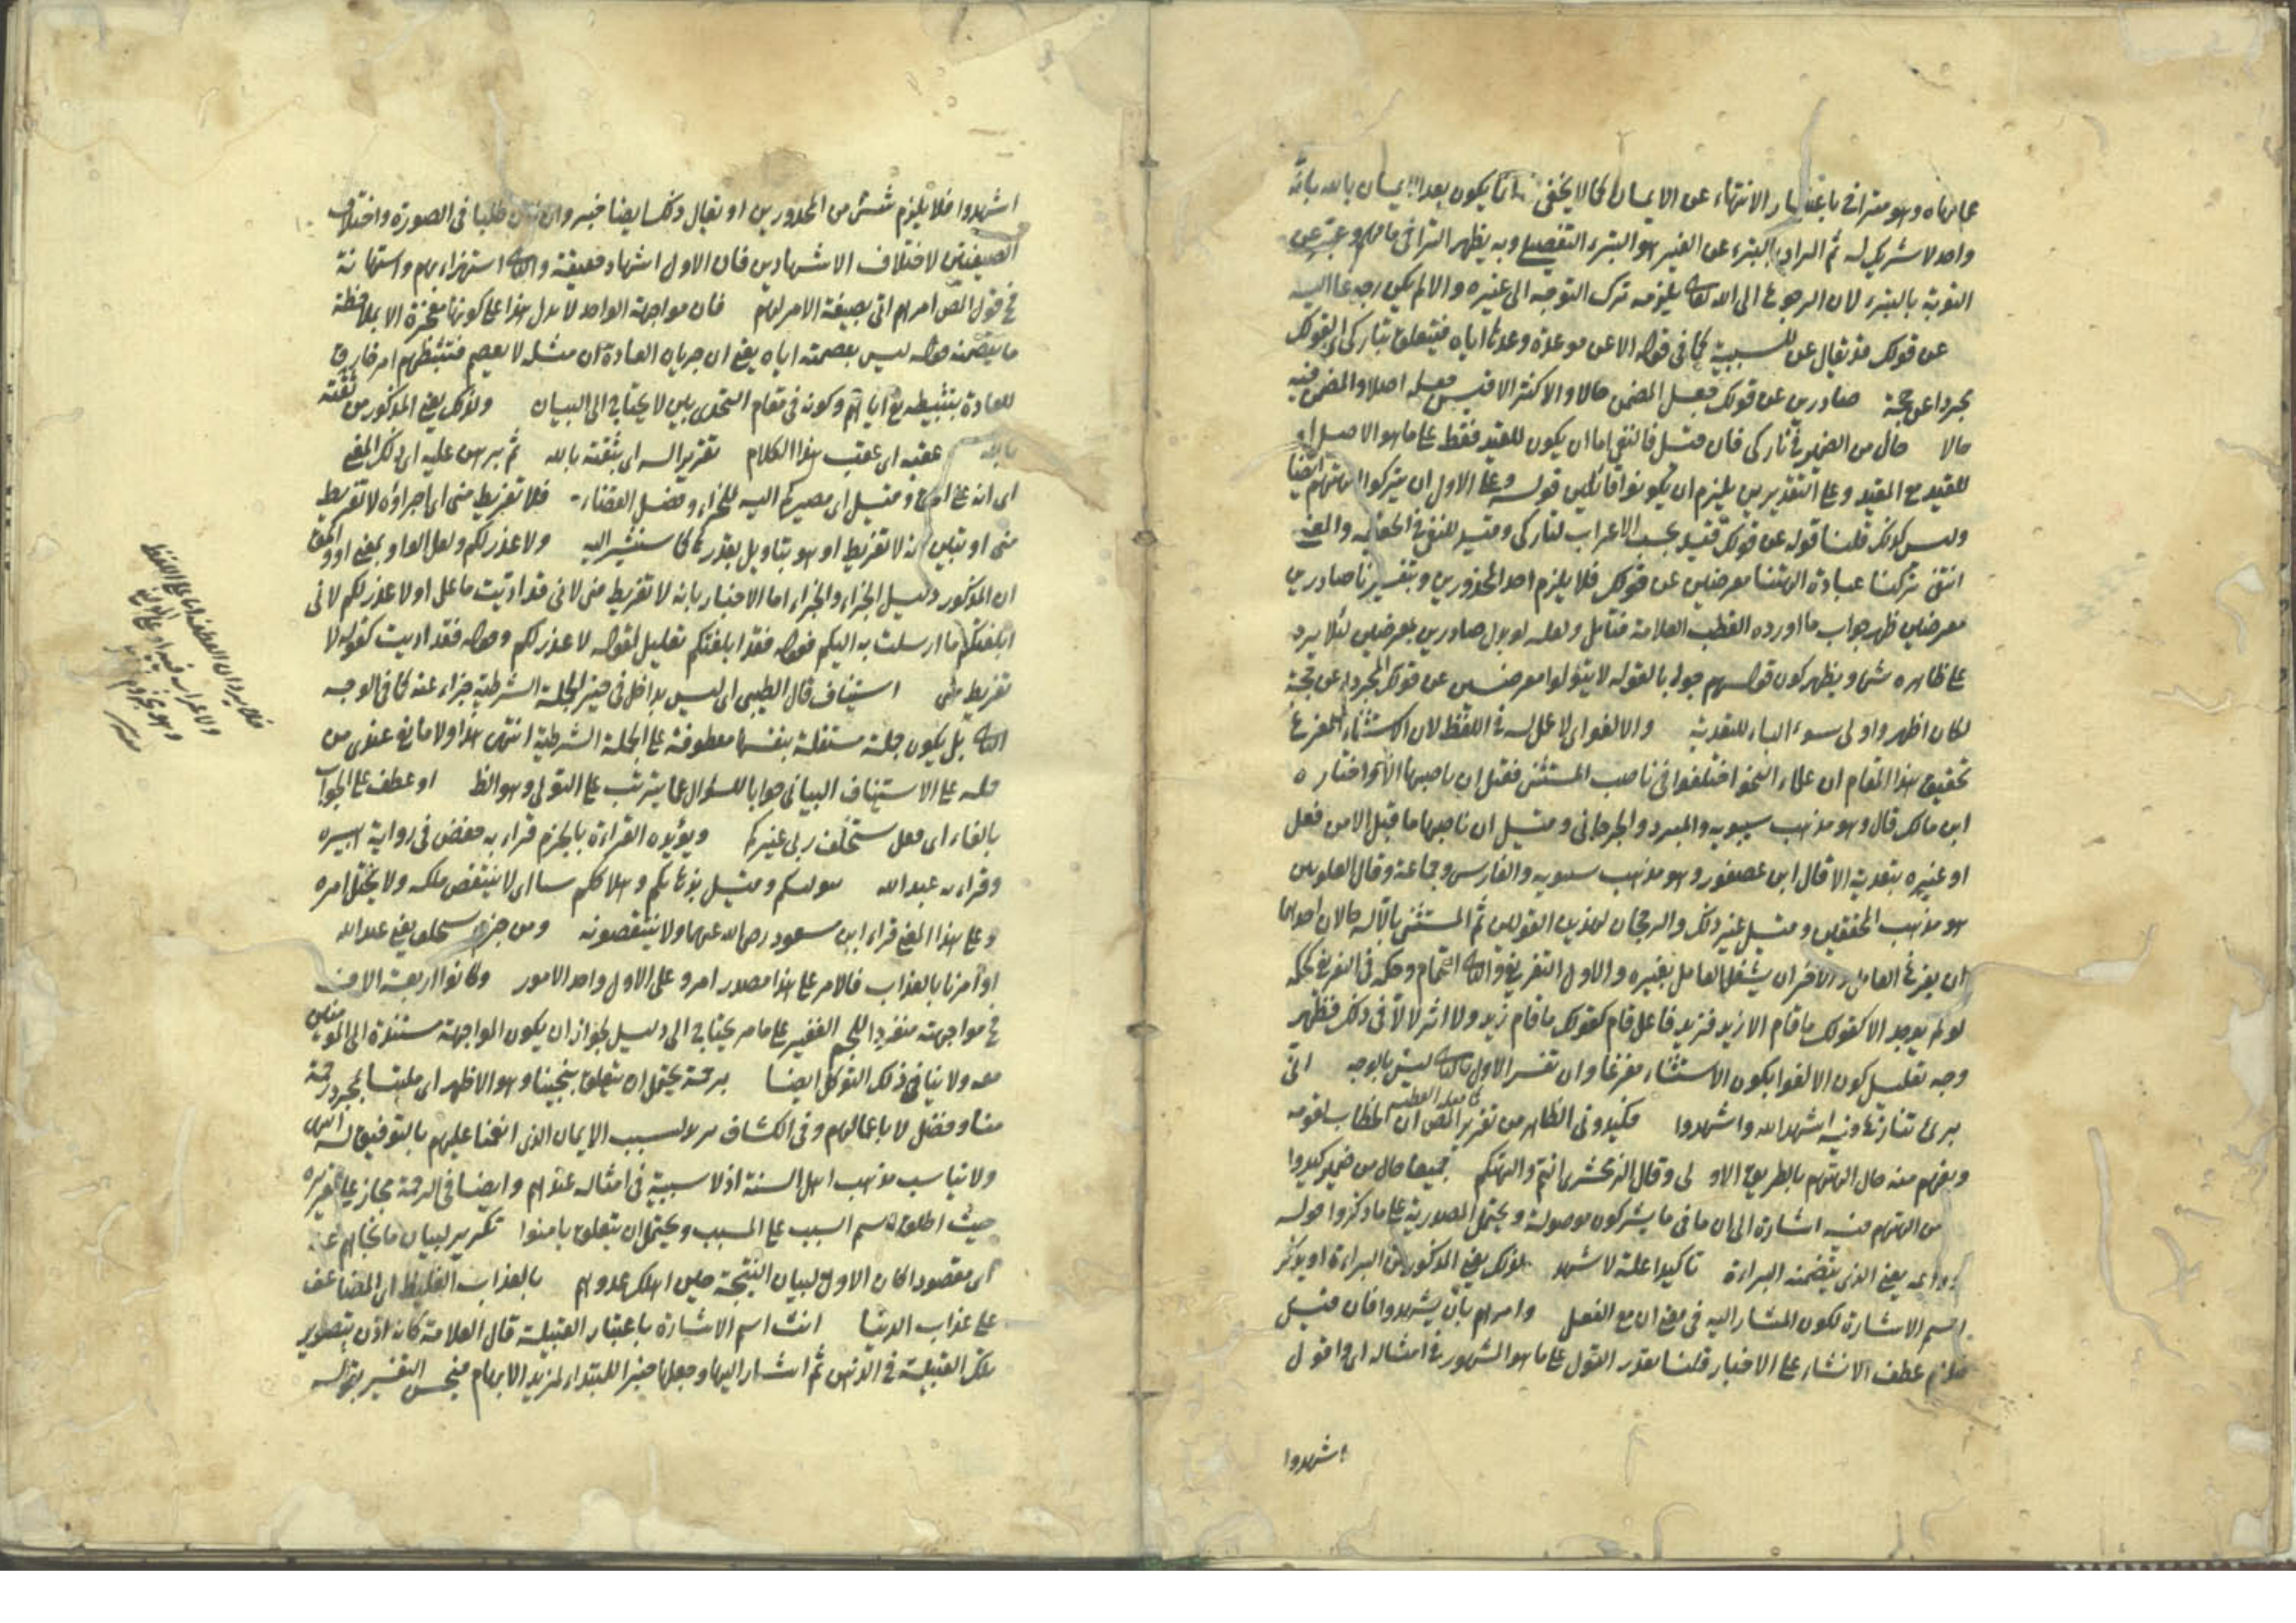 عما نهاه وهو متراخ باعتبار الانتهاء عن الايمان كما لا يخفى انما يكون بعد الايمان بالله بانه
واحد لا شريك له ثم المراد بالتبرء عن الغير هو التبرء التفصيلي وبه يظهر التراخي فافهم وعبر عن
التوبة بالتبرء لان الرجوع الى الله تعالى يلزمه ترك التوجه الى غيره والا لم يكن رجوعا اليه
عن قولك قد يقال عن للسببية كما في قوله الا عن موعدة وعدها اياه فيتعلق بتاركي اي لقولك
مجردا عن حجة صادرين عن قولك جعل المضمن حالا والاكثر الاقيس جعله اصلا والمضمن فيه
حالا حال من الضمير في تاركي فان قيل فالنفي اما ان يكون للقيد فقط على ما هو الاصل او
للقيد مع المقيد وعلى التقديرين يلزم ان يكونوا قائلين قوله وعلى الاول ان يتركوا الهتهم ايضا
وليس كذلك قلنا قوله عن قولك قيد بحسب الاعراب لتاركي وقيد للنفي في الحقيقة والمعنى
انتفى تركنا عبادة الهتنا معرضين عن قولك فلا يلزم احد المحذورين وبتفسيرنا صادرين
معرضين ظهر جواب ما اورده القطب العلامة فتأمل ولعله لو بدل صادرين بمعرضين لئلا يرد
على ظاهره شئ ويظهر كون قولهم جوابا لقوله لا يتولوا معرضين عن قولك المجرد عن حجة
لكان اظهر واولى سوء الباء للتعدية والا لغو اي لا عمل له في اللفظ لان الاستثناء المفرغ
تحقيق هذا المقام ان علماء النحو اختلفوا في ناصب المستثنى فقيل ان ناصبها الا نحو اختاره
ابن مالك قال وهو مذهب سيبويه والمبرد والجرجاني وقيل ان ناصبها ما قبل الا من فعل
او غيره بتعدية الا قال ابن عصفور وهو مذهب سيبويه والفارسي وجماعة وقال الشلوبين
هو مذهب المحققين وقيل غير ذلك والرجحان لهذين القولين ثم المستثنى بالا له حالان احدهما
ان يفرغ العامل والاخر ان يشغل العامل بغيره والاول التفريغ والثاني التمام وحكمه في التفريغ حكمه
لو لم يوجد الا كقولك ما قام الا زيد فزيد فاعل قام كقولك ما قام زيد ولا اثر لالا في ذلك فظهر
وجه تعليل كون الا لغوا بكون الاستثناء مفرغا وان تفسير الاول بالثاني ليس بالوجه اني
برئ تنازع فيه اشهد الله واشهدوا فكيدوني الظاهر من تقرير المص ان الخطاب لقومه
ويفهم منه حال الهتهم بالطريق الاولى وقال الزمخشري انتم والهتكم جميعا حال من ضمير كيدوا
من الهتهم فيه اشارة الى ان ما في ما يشركون موصولة ويحتمل المصدرية على ما ذكروا قوله
يعني الذي يتضمنه البراءة تأكيدا علة لاشهد بذلك يعني المذكور من البراءة او يذكر
اسم الاشارة لكون المشار اليه في معنى ان مع الفعل وامرهم بان يشهدوا فان قيل
فلزم عطف الانشاء على الاخبار قلنا يقدر القول على ما هو المشهور في امثاله اي واقول
اشهدوا
اشهدوا فلا يلزم شئ من المحذورين او يقال ذلك ايضا خبر وان كان طلبا في الصورة واختلاف
الصيغتين لاختلاف الاشهادين فان الاول اشهاد حقيقة والثاني استهزاء بهم واستهانة
فح قول المص امرهم اتى بصيغة الامر لهم فان مواجهة الواحد لا يدل هذا على كونها معجزة الا بملاحظة
ما يتضمنه قوله ليس بعصمته اياه يعني ان جريان العادة ان مثله لا يعصم فتثبطهم امر خارق
للعادة بتثبيطه تع اياهم وكونه في مقام التحدي بين لا يحتاج الى البيان ولذلك يعني المذكور من ثقته
بالله عقبه اي عقب هذا الكلام تقريرا له اي بثقته بالله ثم برهن عليه اي ذلك المعنى
اي انه على الحق وقيل اي مصيركم اليه للجزاء وفصل القضاء فلا تفريط مني اي اجراؤه لا تفريط
مني او بتبين انه لا تفريط او هو بتاويل يقدر كما سنشير اليه ولا عذر لكم ولعل الواو بمعنى او والحق
ان المذكور دليل الجزاء والجزاء اما الاخبار بانه لا تفريط مني لاني قد اديت ما علي او لا عذر لكم لاني
ابلغتكم ما ارسلت به اليكم فقوله فقد ابلغتكم تعليل لقوله لا عذر لكم وقوله فقد اديت كقوله لا
تفريط مني استيناف قال الطيبي اي ليس بداخل في حيز الجملة الشرطية جزاء عنه كما في الوجه
الثاني بل يكون جملة مستقلة بنفسها معطوفة على الجملة الشرطية انتهى هذا ولا مانع عندي من
حمله على الاستيناف البياني جوابا للسؤال عما يترتب على التولي وهو الظ او عطف على الجواب
بالفاء اي فعل ستخلف ربي غيركم ويؤيده القراءة بالجزم قراء به حفص في رواية هبيرة
وقراءة عبد الله بتوليكم وقيل بذهابكم وهلاككم شيئا اي لا ينتقص ملكه ولا يختل امره
وعلى هذا المعنى قراء ابن مسعود رضي الله عنهما ولا تنتقصونه ومن جزم يستخلف يعني عبد الله
او امرنا بالعذاب فالامر على هذا مصدر امر وعلى الاول واحد الامور وكانوا اربعة الاف
في مواجهته منفردا للجم الغفير على ما مر يحتاج الى دليل لجواز ان يكون المواجهة مستندة الى المؤمنين
معه ولا ينافي ذلك التوكل ايضا برحمة يحتمل ان يتعلق بنجينا وهو الاظهر اي ملتبسا بمجرد رحمة
منا وفضل لا باعمالهم وفي الكشاف بسبب الايمان الذي انعمنا عليهم بالتوفيق له انتهى
ولا يناسب مذهب اهل السنة اذ لا سببية في امثاله عندهم وايضا في الرحمة مجاز على تقريره
حيث اطلق اسم السبب على المسبب ويحتمل ان يتعلق بامنوا تكرير لبيان ما نجاهم عنه
اي مقصودا كان الاول لبيان النتيجة حين اهلك عدوهم بالعذاب الغليظ اي المضاعف
على عذاب الدنيا انث اسم الاشارة باعتبار القبيلة قال العلامة كانه اذن بتصوير
تلك القبيلة في الذهن ثم اشار اليها وجعلها خبرا للمبتداء لمزيد الابهام فيحسن التفسير بقوله
فلا يرد ان العطف اما على اللفظ